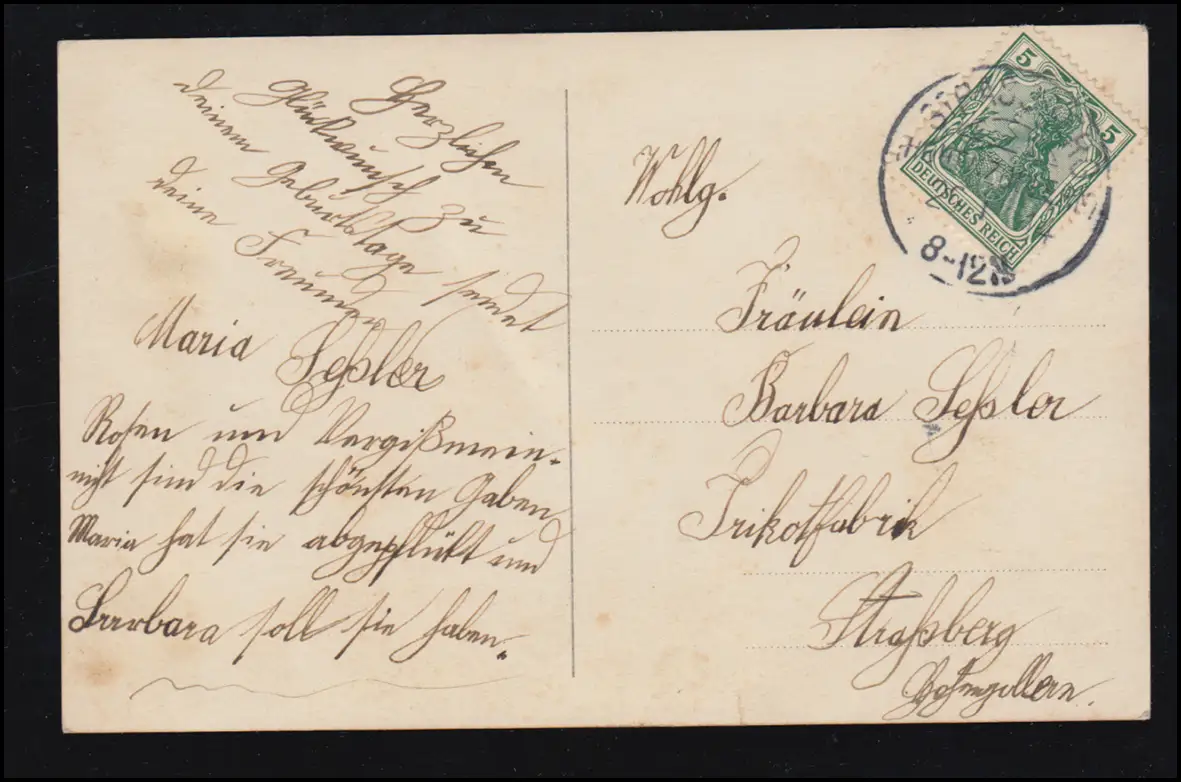 Herzlichen
Glückwunsch zu
deinem Geburtstage sendet
deine Freundin
Maria Seßler
Rosen und Vergißmein-
nicht sind die schönsten Gaben
Maria hat sie abgepflükt und
Barbara soll sie haben.
5 5
DEUTSCHES REICH
8-12
Wohlg.
Fräulein
Barbara Seßler
Trikotfabrik
Straßberg
Hohenzollern.